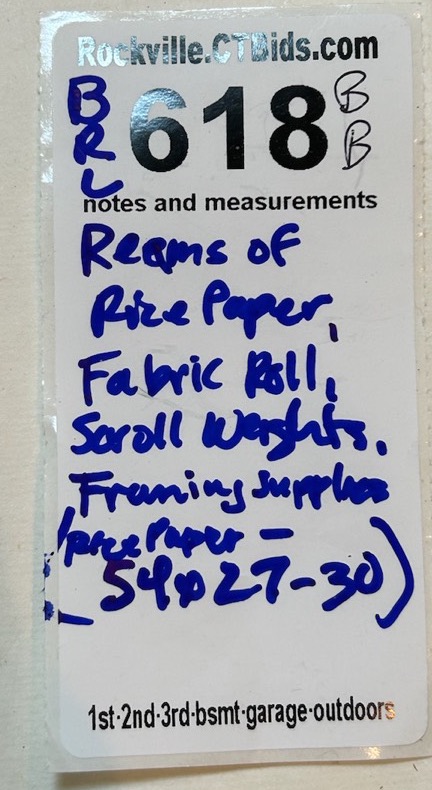 Rockville.CTBids.com
BRL 618 BB
notes and measurements
Reams of
Rice Paper,
Fabric Roll,
Scroll Weights,
Framing supplies
(rice Paper -
54x27-30)
1st·2nd·3rd·bsmt·garage·outdoors